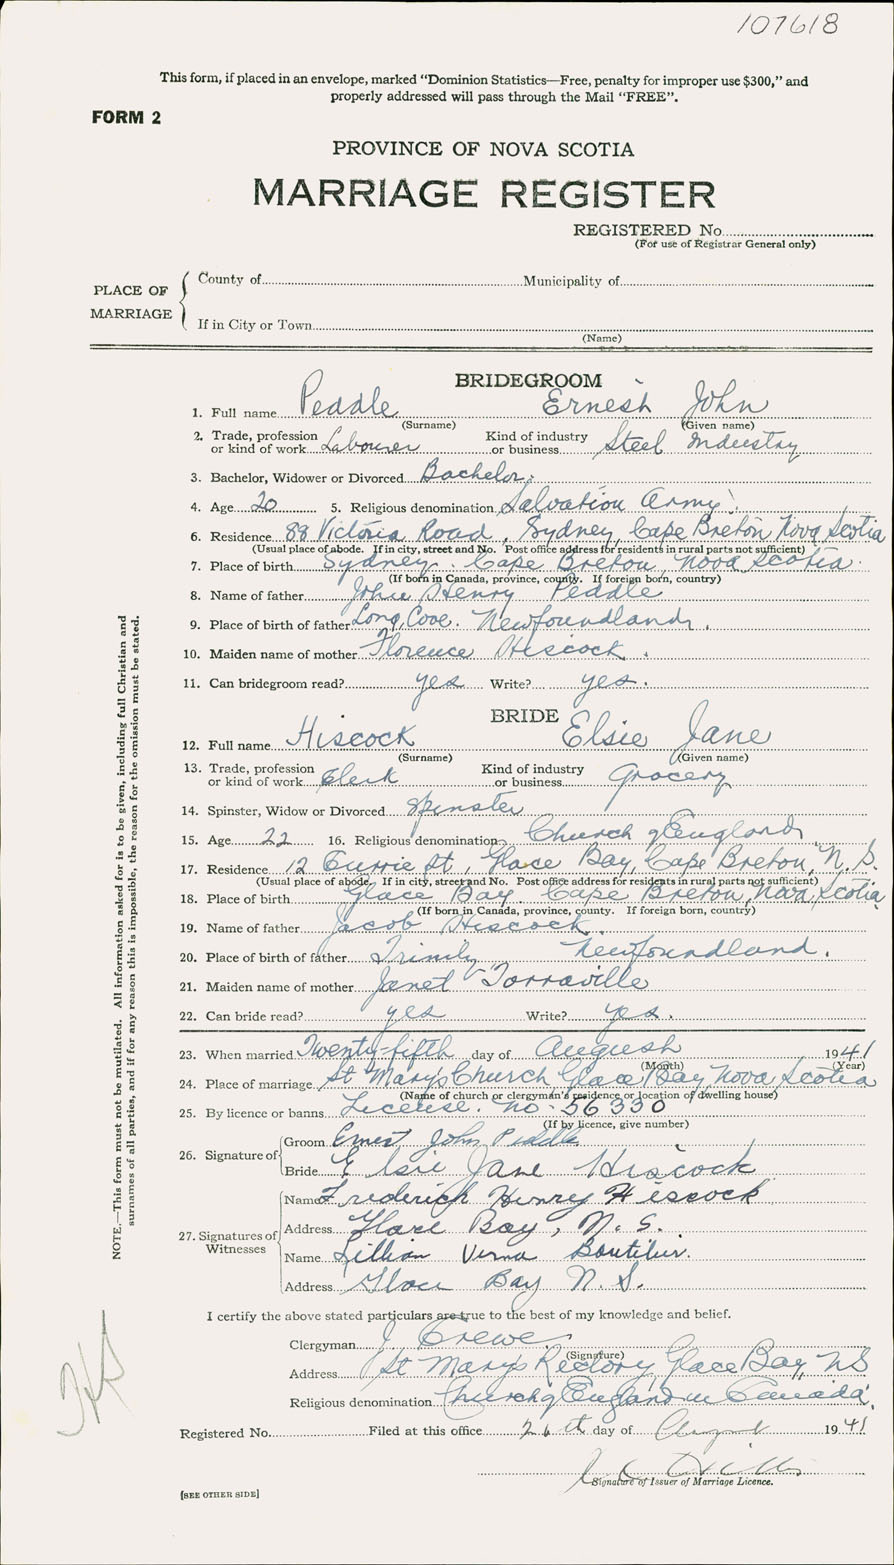 107618
This form, if placed in an envelope, marked "Dominion Statistics—Free, penalty for improper use $300," and
properly addressed will pass through the Mail "FREE".
FORM 2
PROVINCE OF NOVA SCOTIA
MARRIAGE REGISTER
REGISTERED No.
(For use of Registrar General only)
PLACE OF MARRIAGE
County of Municipality of
If in City or Town
(Name)
BRIDEGROOM
1. Full name Peddle Ernest John
(Surname) (Given name)
2. Trade, profession or kind of work Labourer Kind of industry or business Steel Industry
3. Bachelor, Widower or Divorced Bachelor.
4. Age 20 5. Religious denomination Salvation Army.
6. Residence 88 Victoria Road, Sydney, Cape Breton Nova Scotia
(Usual place of abode. If in city, street and No. Post office address for residents in rural parts not sufficient)
7. Place of birth Sydney. Cape Breton, Nova Scotia.
(If born in Canada, province, county. If foreign born, country)
8. Name of father John Henry Peddle
9. Place of birth of father Long Cove. Newfoundland.
10. Maiden name of mother Florence Hiscock.
11. Can bridegroom read? yes Write? yes.
BRIDE
12. Full name Hiscock Elsie Jane
(Surname) (Given name)
13. Trade, profession or kind of work Clerk Kind of industry or business Grocery
14. Spinster, Widow or Divorced Spinster
15. Age 22 16. Religious denomination Church of England
17. Residence 12 Currie St, Glace Bay, Cape Breton, N.S.
(Usual place of abode. If in city, street and No. Post office address for residents in rural parts not sufficient)
18. Place of birth Glace Bay. Cape Breton, Nova Scotia
(If born in Canada, province, county. If foreign born, country)
19. Name of father Jacob Hiscock.
20. Place of birth of father Trinity Newfoundland.
21. Maiden name of mother Janet Torraville
22. Can bride read? yes Write? yes.
23. When married Twenty-fifth day of August 1941
(Month) (Year)
24. Place of marriage St Mary's Church Glace Bay Nova Scotia
(Name of church or clergyman's residence or location of dwelling house)
25. By licence or banns License. No. 56330
(If by licence, give number)
26. Signature of
Groom Ernest John Peddle
Bride Elsie Jane Hiscock
27. Signatures of Witnesses
Name Frederick Henry Hiscock
Address Glace Bay, N.S.
Name Lillian Verna Boutilier.
Address Glace Bay N.S.
I certify the above stated particulars are true to the best of my knowledge and belief.
Clergyman J Crewe
(Signature)
Address St Mary's Rectory, Glace Bay, NS
Religious denomination Church of England in Canada.
Registered No. Filed at this office 26th day of August 1941
Signature of Issuer of Marriage Licence.
[SEE OTHER SIDE]
NOTE.—This form must not be mutilated. All information asked for is to be given, including full Christian and
surnames of all parties, and if for any reason this is impossible, the reason for the omission must be stated.